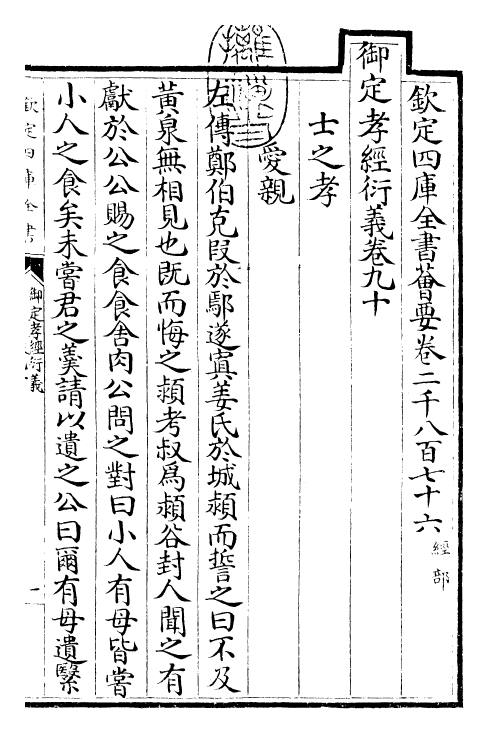 欽定四庫全書薈要卷二千八百七十六 經部
御定孝經衍義卷九十
士之孝
愛親
左傳鄭伯克段於鄢遂寘姜氏於城潁而誓之曰不及
黃泉無相見也既而悔之潁考叔爲潁谷封人聞之有
獻於公公賜之食食舍肉公問之對曰小人有母皆嘗
小人之食矣未嘗君之羹請以遺之公曰爾有母遺繄
欽定四庫全書
御定孝經衍義
一